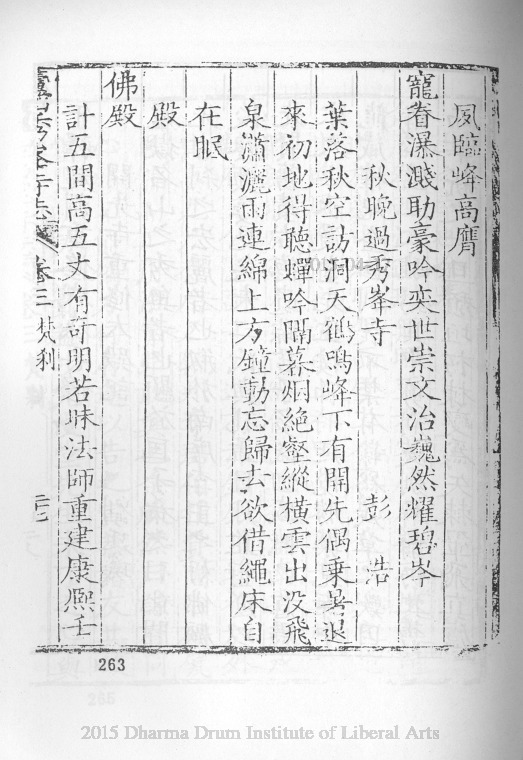 夙臨峰高膺
寵眷瀑濺助豪吟奕世崇文治巍然耀碧岑
秋晚過秀峯寺 彭 浩
葉落秋空訪洞天鶴鳴峰下有開先偶乗吳退
來初地得聽蟬吟隔暮烟絶壑縱橫雲出没飛
泉瀟灑雨連綿上方鐘動忘歸去欲借繩床自
在眠
殿
佛殿
計五間高五丈有竒明若昧法師重建康熙壬
秀峯寺志 卷三 梵刹 二七
263
2015 Dharma Drum Institute of Liberal Arts